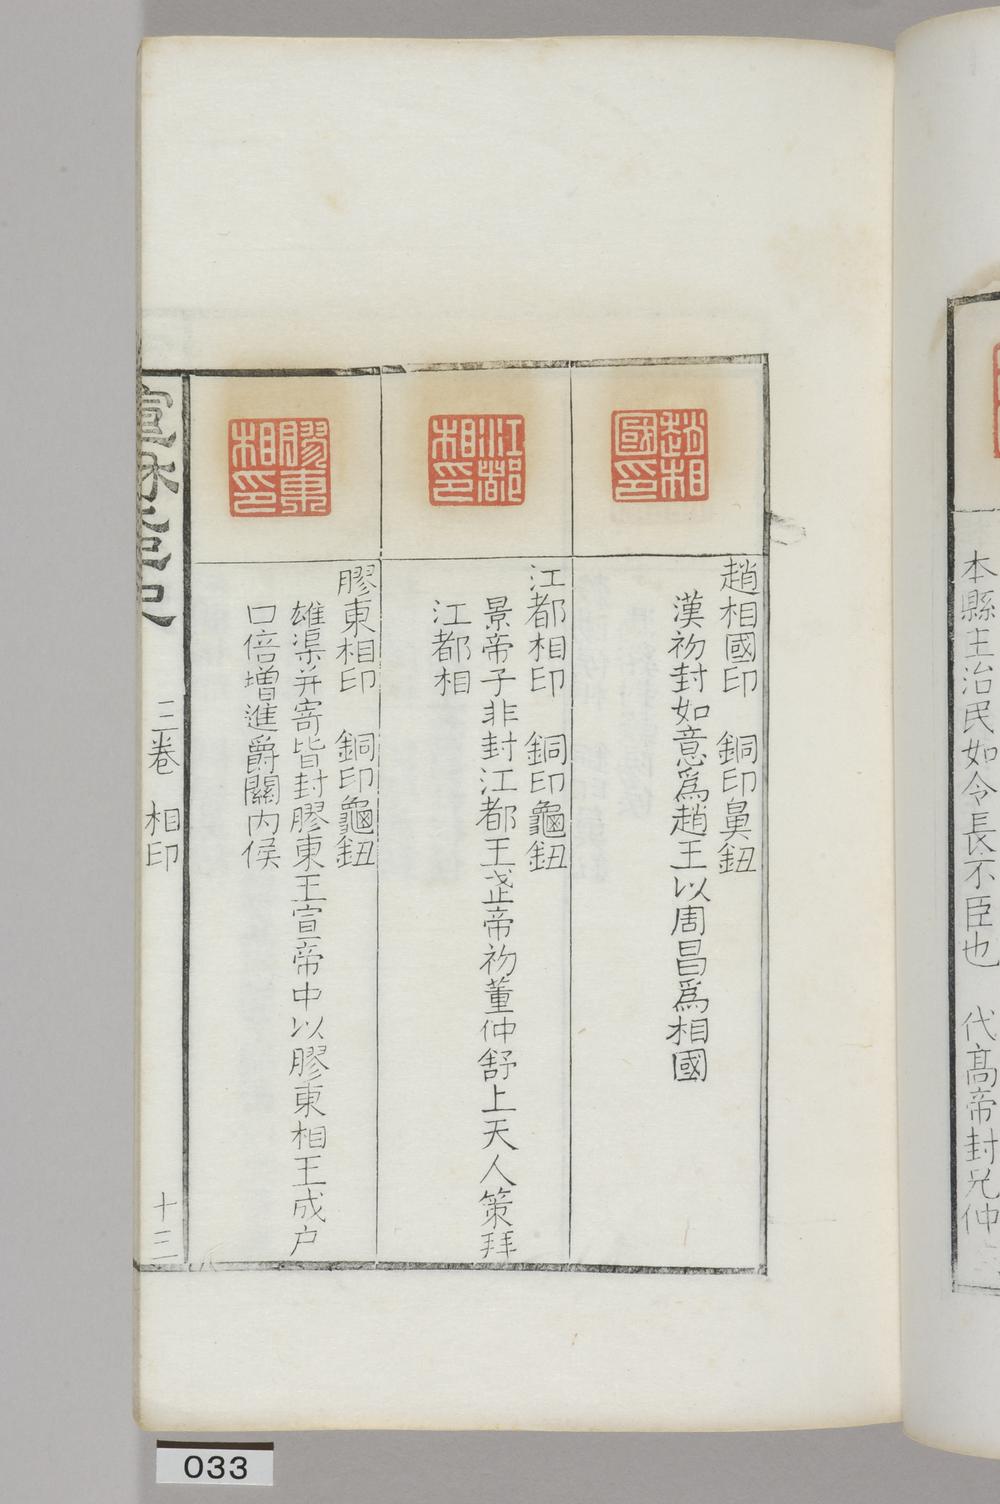 本縣主治民如令長不臣也　代高帝封兄仲
趙相國印
趙相國印　銅印鼻鈕
漢初封如意爲趙王以周昌爲相國
江都相印
江都相印　銅印龜鈕
景帝子非封江都王武帝初董仲舒上天人策拜
江都相
膠東相印
膠東相印　銅印龜鈕
雄渠并寄皆封膠東王宣帝中以膠東相王成户
口倍增進爵關内侯
三卷　相印
十三
033